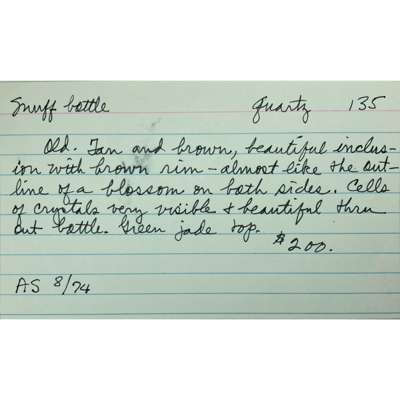 Snuff bottle Quartz 135
Old. Tan and brown, beautiful inclus-
ion with brown rim - almost like the out-
line of a blossom on both sides. Cells
of crystals very visible & beautiful thru
out bottle. Green jade top.
$200.
AS 8/74